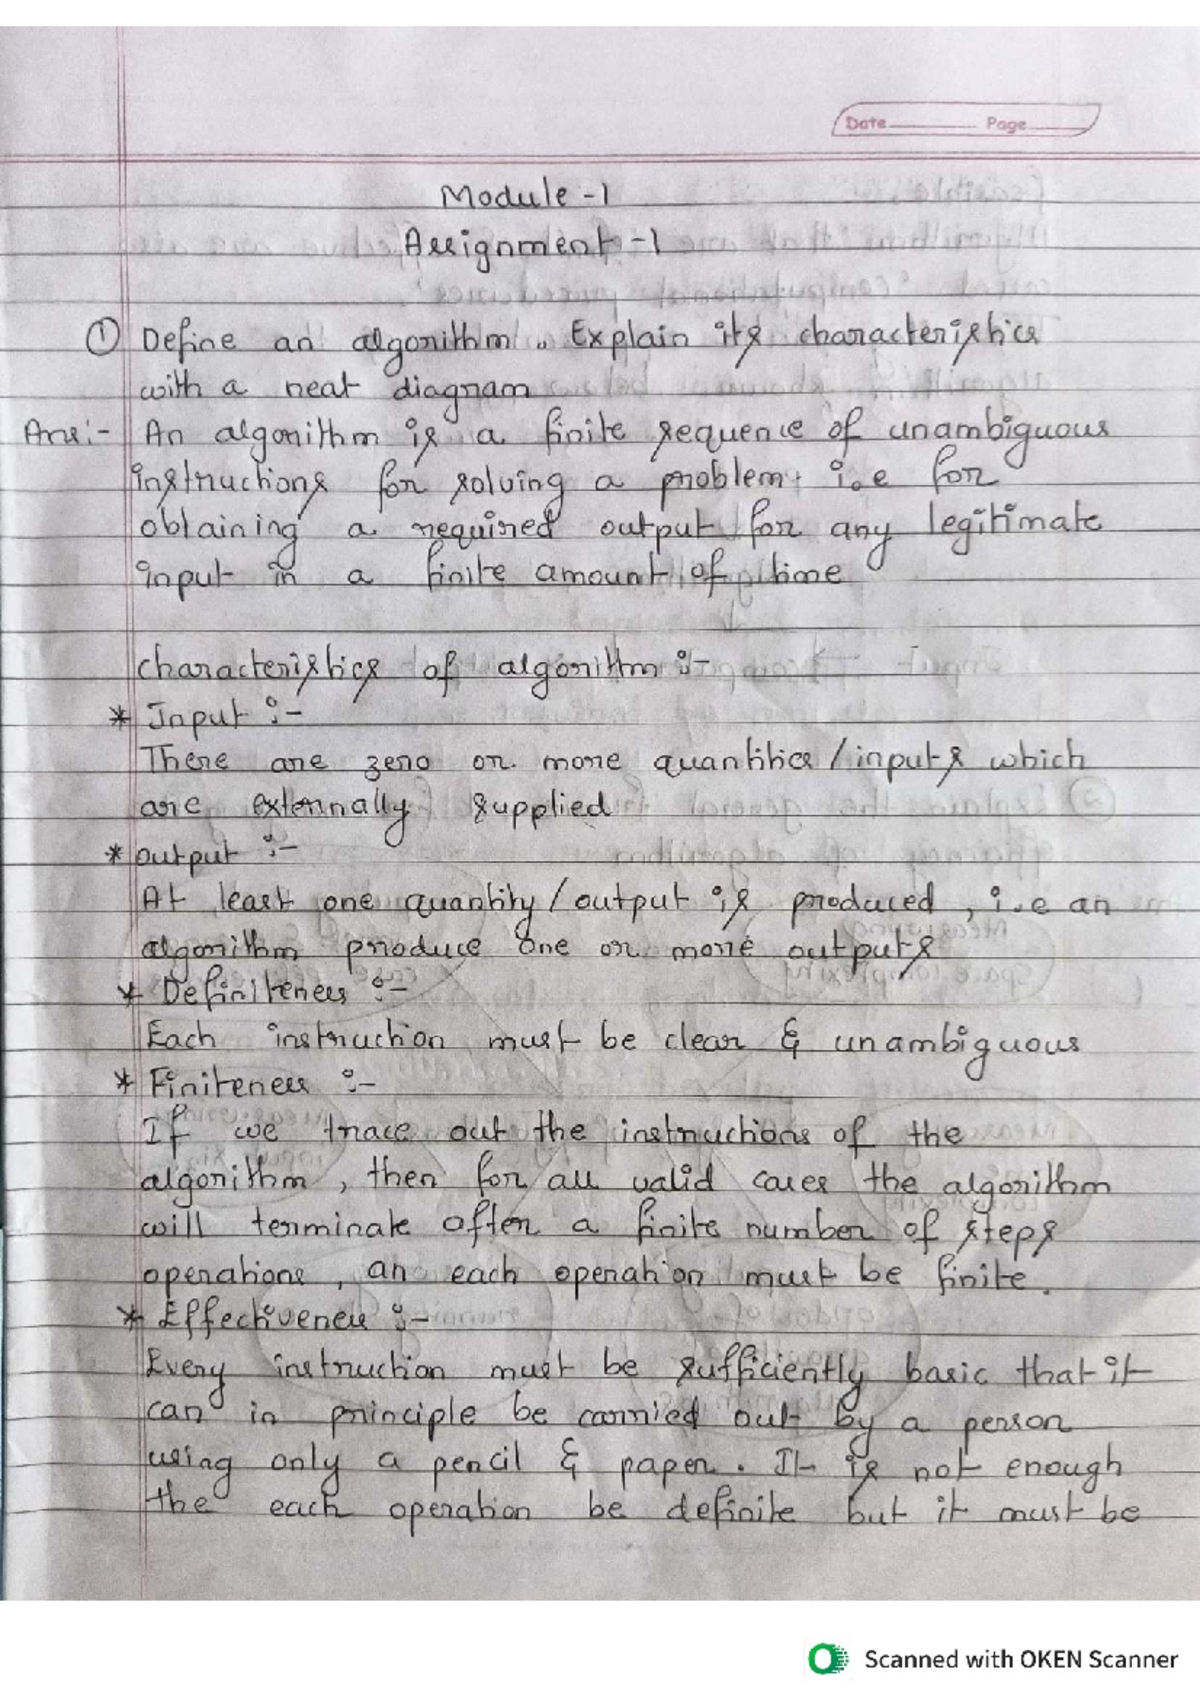 Date Page
Module -1
Assignment -1
① Define an algorithm. Explain its characteristics
with a neat diagram
Ans:- An algorithm is a finite sequence of unambiguous
instructions for solving a problem. i.e for
obtaining a required output for any legitimate
input in a finite amount of time
characteristics of algorithm :-
* Input :-
There are zero or more quantities / inputs which
are externally supplied
* output :-
At least one quantity / output is produced , i.e an
algorithm produce one or more outputs
* Definiteness :-
Each instruction must be clear & unambiguous
* Finiteness :-
If we trace out the instructions of the
algorithm , then for all valid cases the algorithm
will terminate after a finite number of steps
operations , an each operation must be finite.
* Effectiveness :-
Every instruction must be sufficiently basic that it
can in principle be carried out by a person
using only a pencil & paper. It is not enough
the each operation be definite but it must be
Scanned with OKEN Scanner